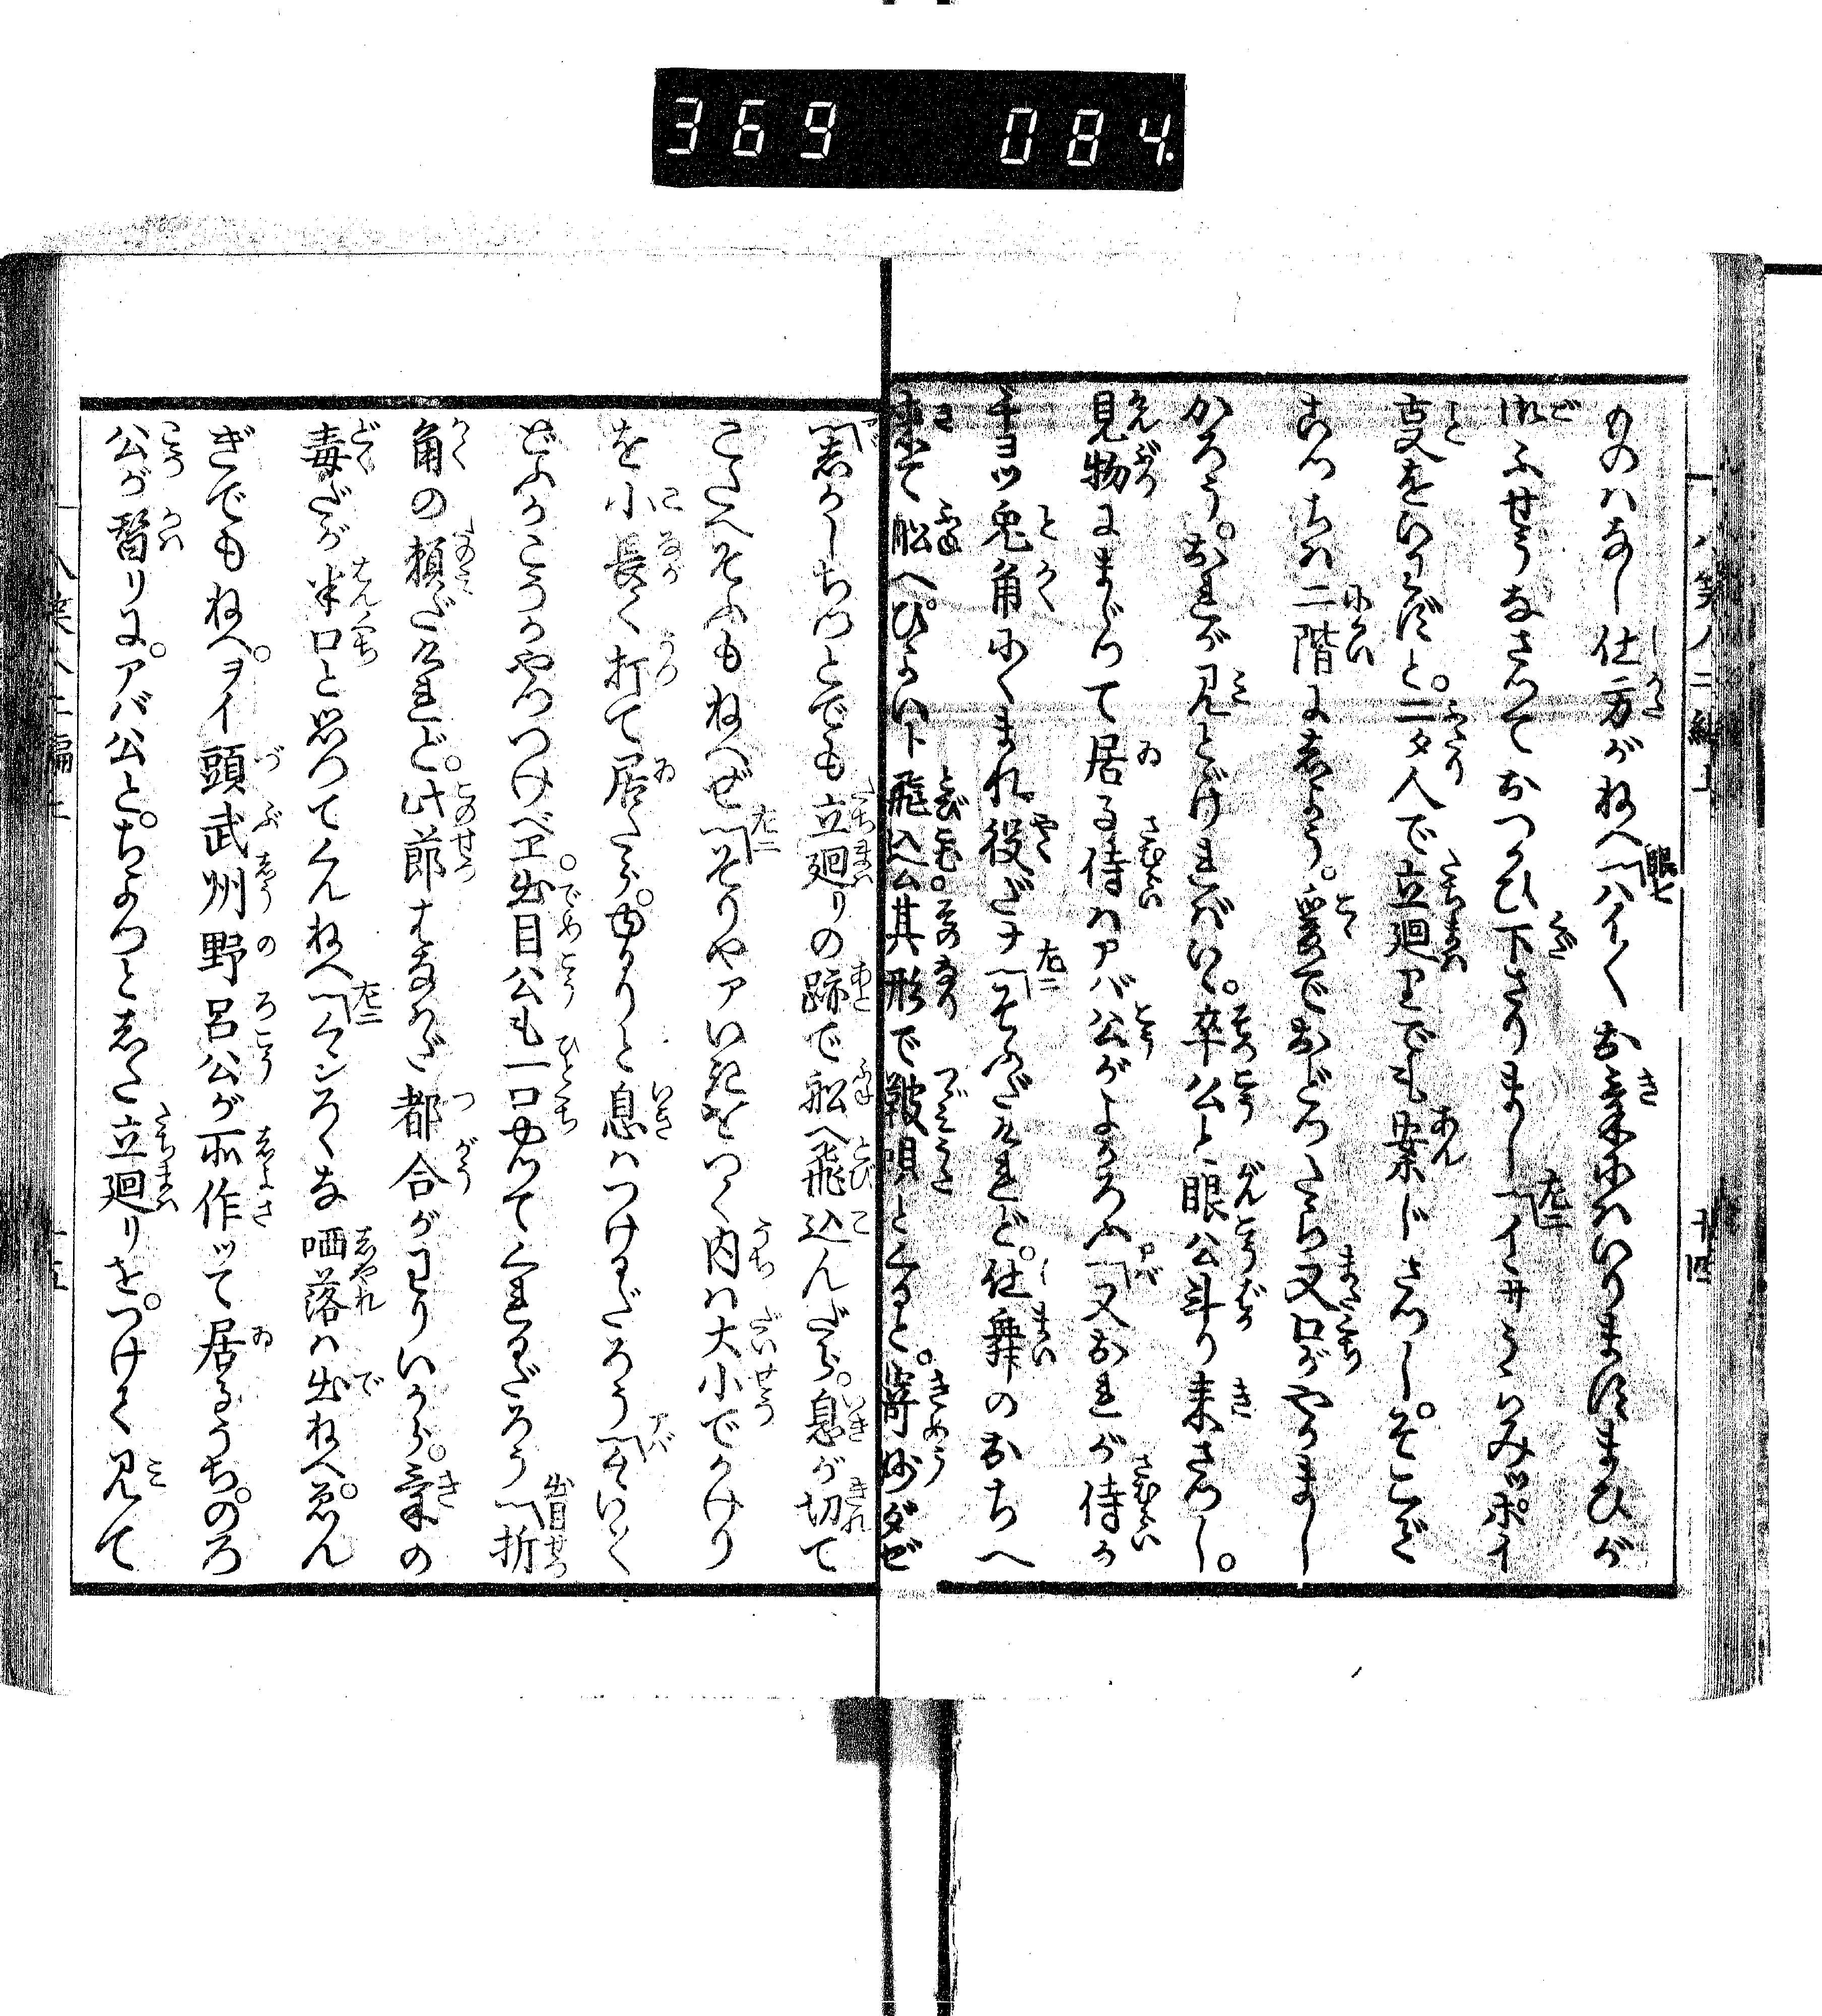 369 084.
ものハなし仕方がねへ「ハイ〳〵お気にハいりますまひが
御ふせうなさつておつかひ下さりまし「イサうらみツポイ
事をいハずと。二タ人で立廻りでも案じさつし。そこで
こつちハ二階にしよう。爰でおどつたら又口がやかまし
かろう。おれが見とゞければいゝ。卒公と眼公斗り来さつし。
見物にまじつて居る侍ハアバ公がよかろふ「又おれが侍か
チヨツ兎角にくまれ役だナ「そふだけれど。仕舞のおちへ
来て船へぴよいト飛込。其形で鞁唄とくると。奇妙ダゼ
「しかしちつとでも立廻りの跡で船へ飛込んだら。息が切て
こてへそふもねへぜ「そりやアいきをつく内ハ大小でかけり
を小長く打て居たら。ゆるりと息ハつけるだろう「
どふかこうかやつつけべヱ。出目公も一口やつてくれるだろう「折
角の頼だけれど。此節はなはだ都合がわりいから。気の
毒だが半口と思つてくんねへ「ろくな洒落ハ出ねへ。
ぎでもねへ。ヲイ頭武州野呂公が所作ツて居るうち。のろ
公が替りに。アバ公と。ちよつとした立廻りを。つけて見て
八笑人二編上
十四